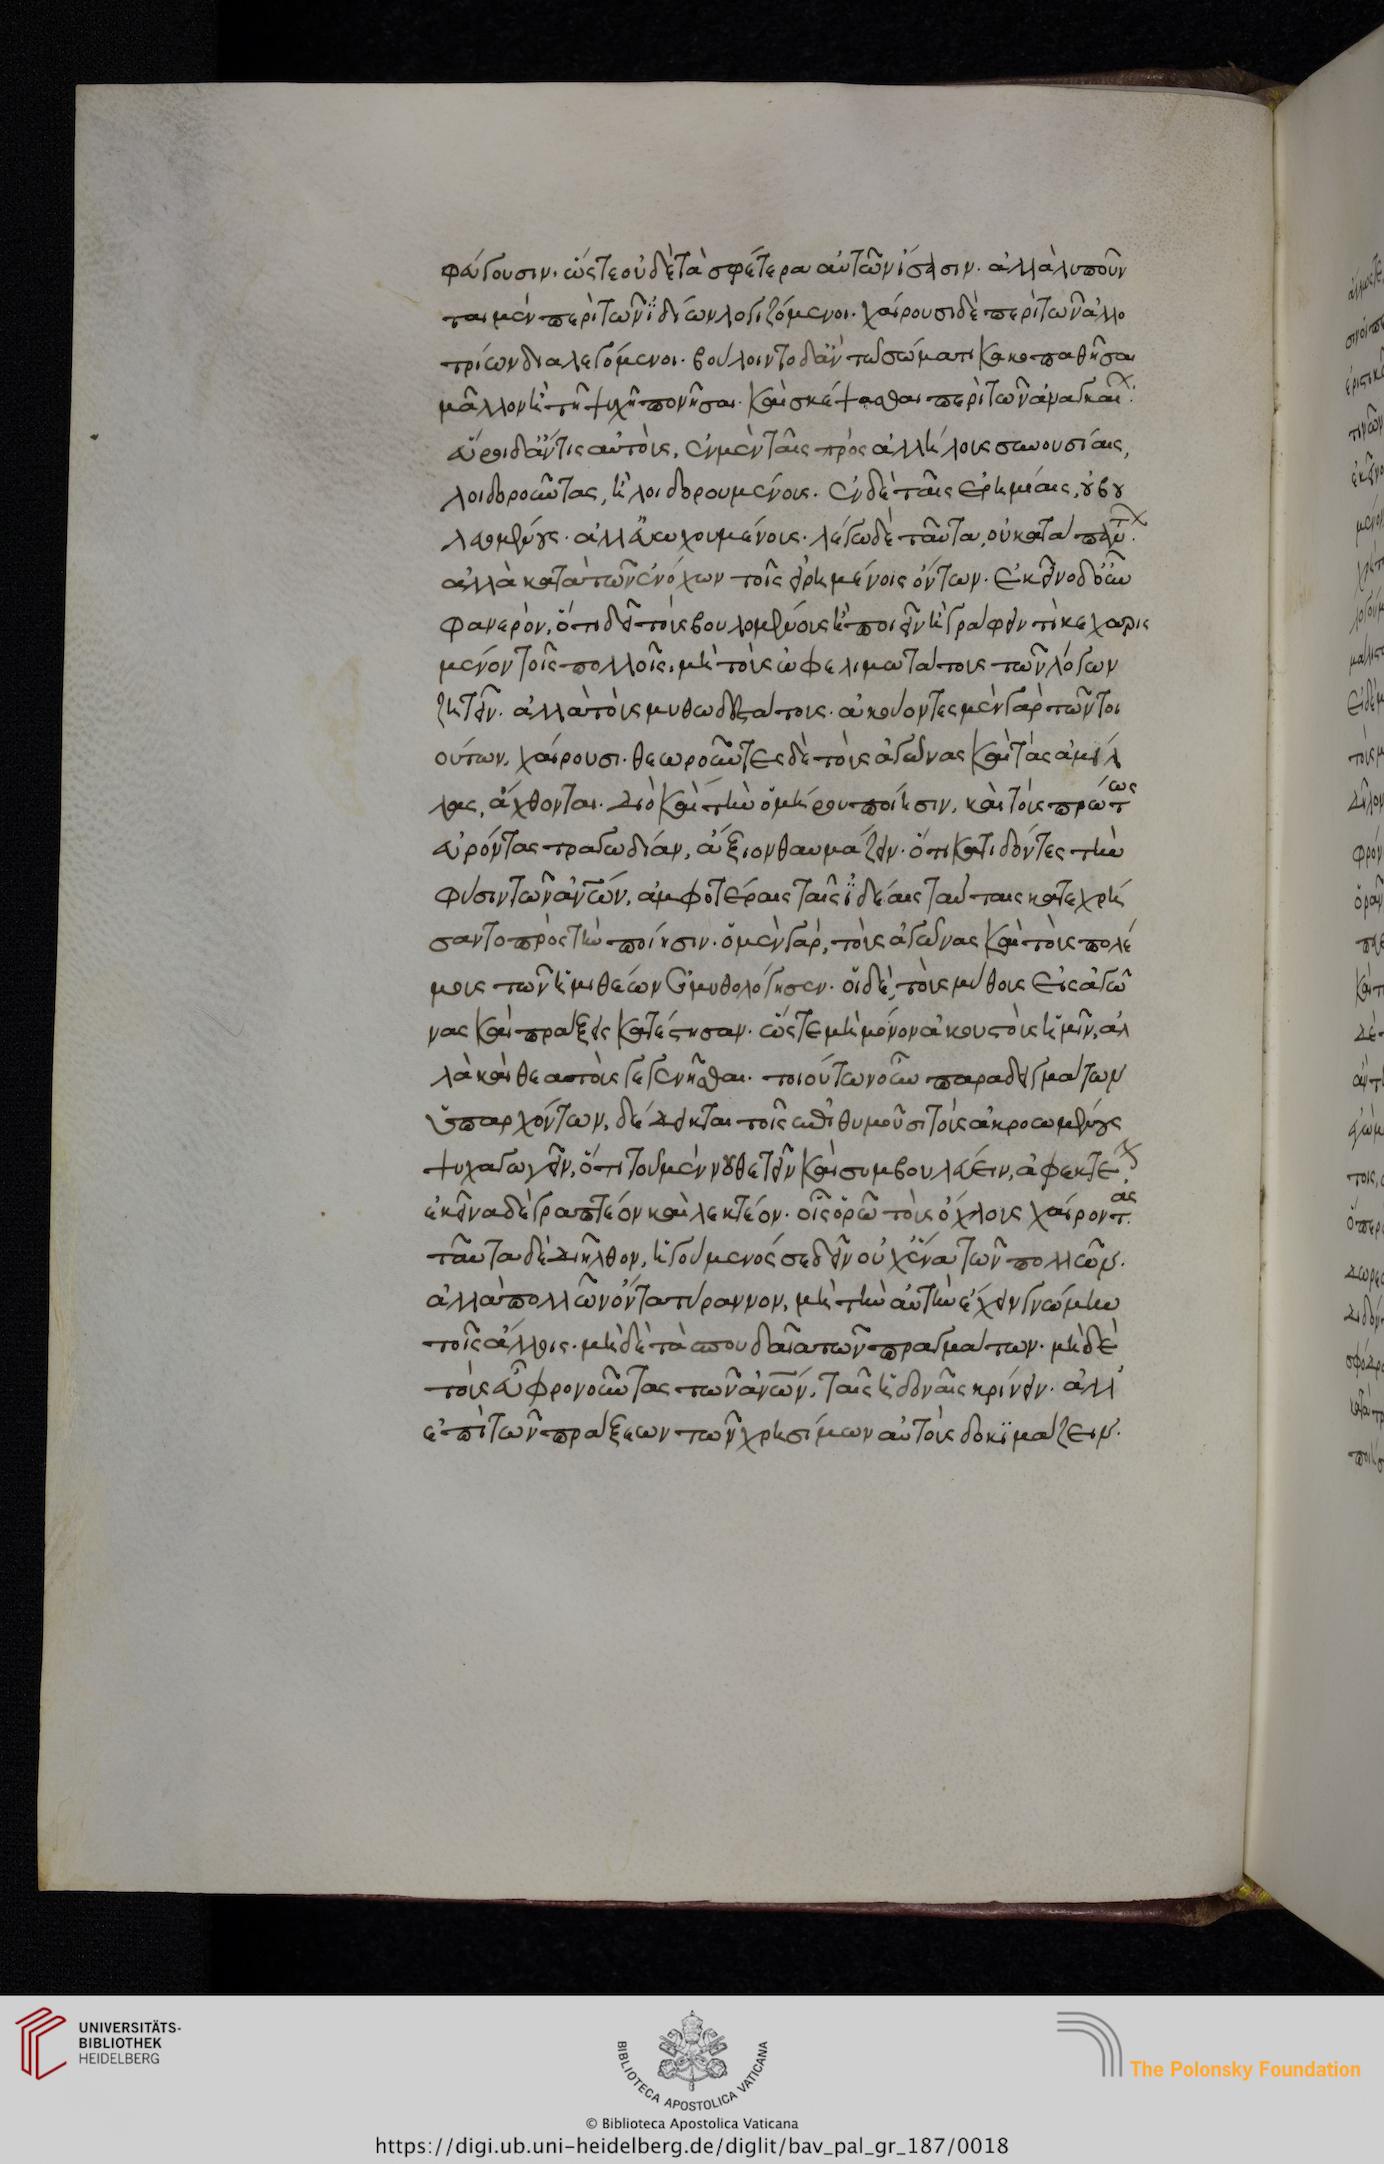 φεύγουσιν. ὥστε οὐδὲ τὰ σφέτερα αὐτῶν ἴσασιν. ἀλλὰ λυποῦν
ται μὲν περὶ τῶν ἰδίων λογιζόμενοι. χαίρουσι δὲ περὶ τῶν ἀλλο
τρίων διαλεγόμενοι. βούλοιντο δ' ἂν τῷ σώματι κακοπαθῆσαι
μᾶλλον ἢ τῇ ψυχῇ πονῆσαι. καὶ σκέψασθαι περὶ τῶν ἀναγκαί.
εὕροι δ' ἄν τις αὐτοὺς, ἐν μὲν ταῖς πρὸς ἀλλήλους συνουσίαις,
λοιδοροῦντας, ἢ λοιδορουμένους. ἐν δὲ ταῖς ἐρημίαις, οὐ βου
λευομένους. ἀλλ' εὐχομένους. λέγω δὲ ταῦτα, οὐ κατὰ πάντ.
ἀλλὰ κατὰ τῶν ἐνόχων τοῖς εἰρημένοις ὄντων. ἐκεῖνο δ' οὖν
φανερὸν, ὅτι δεῖ τοὺς βουλομένους ἢ ποιεῖν ἢ γράφειν τι κεχαρισ
μένον τοῖς πολλοῖς, μὴ τοὺς ὠφελιμωτάτους τῶν λόγων
ζητεῖν. ἀλλὰ τοὺς μυθωδεστάτους. ἀκούοντες μὲν γὰρ τῶν τοι
ούτων, χαίρουσι. θεωροῦντες δὲ τοὺς ἀγῶνας καὶ τὰς ἁμίλ
λας, ἄχθονται. διὸ καὶ τὴν ὁμήρου ποίησιν, καὶ τοὺς πρώτως
εὑρόντας τραγωδίαν, ἄξιον θαυμάζειν. ὅτι κατιδόντες τὴν
φύσιν τῶν ἀνων, ἀμφοτέραις ταῖς ἰδέαις ταύταις κατεχρή
σαντο πρὸς τὴν ποίησιν. ὁ μὲν γὰρ, τοὺς ἀγῶνας καὶ τοὺς πολέ
μους τῶν ἡμιθέων ἐμυθολόγησεν. οἱ δὲ, τοὺς μύθους εἰς ἀγῶ
νας καὶ πράξεις κατέστησαν. ὥστε μὴ μόνον ἀκουστοὺς ἡμῖν, ἀλ
λὰ καὶ θεατοὺς γεγενῆσθαι. τοιούτων οὖν παραδειγμάτων
ὑπαρχόντων, δέδεικται τοῖς ἐπιθυμοῦσι τοὺς ἀκροωμένους
ψυχαγωγεῖν, ὅτι τοῦ μὲν νουθετεῖν καὶ συμβουλεύειν, ἀφεκτέ.
ἐκεῖνα δὲ γραπτέον καὶ λεκτέον. οἷς ὁρῶ τοὺς ὄχλους χαίροντας.
ταῦτα δὲ διῆλθον, ἡγούμενός σε δεῖν οὐχ ἕνα τῶν πολλῶν.
ἀλλὰ πολλῶν ὄντα τύραννον, μὴ τὴν αὐτὴν ἔχειν γνώμην
τοῖς ἄλλοις. μηδὲ τὰ σπουδαῖα τῶν πραγμάτων. μηδὲ
τοὺς εὖ φρονοῦντας τῶν ἀνων, ταῖς ἡδοναῖς κρίνειν. ἀλλ'
ἐπὶ τῶν πράξεων τῶν χρησίμων αὐτοὺς δοκιμάζειν.
UNIVERSITÄTS-
BIBLIOTHEK
HEIDELBERG
BIBLIOTECA APOSTOLICA VATICANA
The Polonsky Foundation
© Biblioteca Apostolica Vaticana
https://digi.ub.uni-heidelberg.de/diglit/bav_pal_gr_187/0018